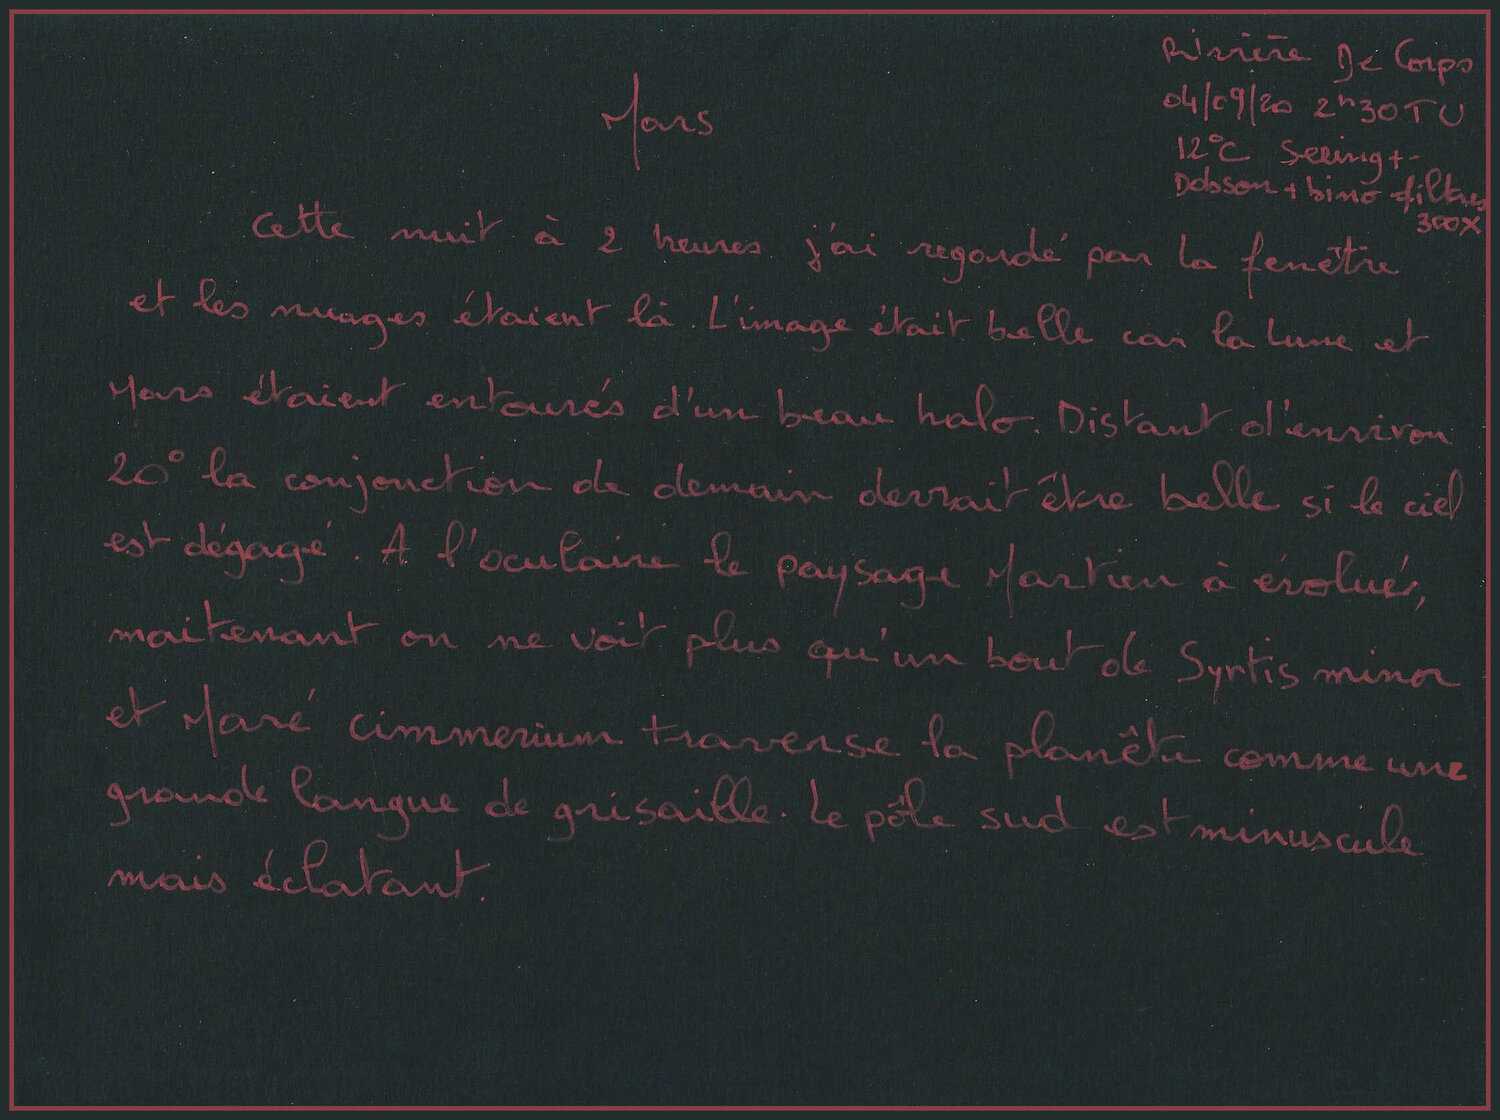 Rivière De Corps
04/09/20 2h30 TU
12°C Seeing +-
Dobson + bino filtres
300X
Mars
Cette nuit à 2 heures j'ai regardé par la fenêtre
et les nuages étaient là. L'image était belle car la Lune et
Mars étaient entourés d'un beau halo. Distant d'environ
20° la conjonction de demain devrait être belle si le ciel
est dégagé. A l'oculaire le paysage Martien à évolués,
maitenant on ne voit plus qu'un bout de Syrtis minor
et Maré cimmerium traverse la planète comme une
grande langue de grisaille. Le pôle sud est minuscule
mais éclatant.